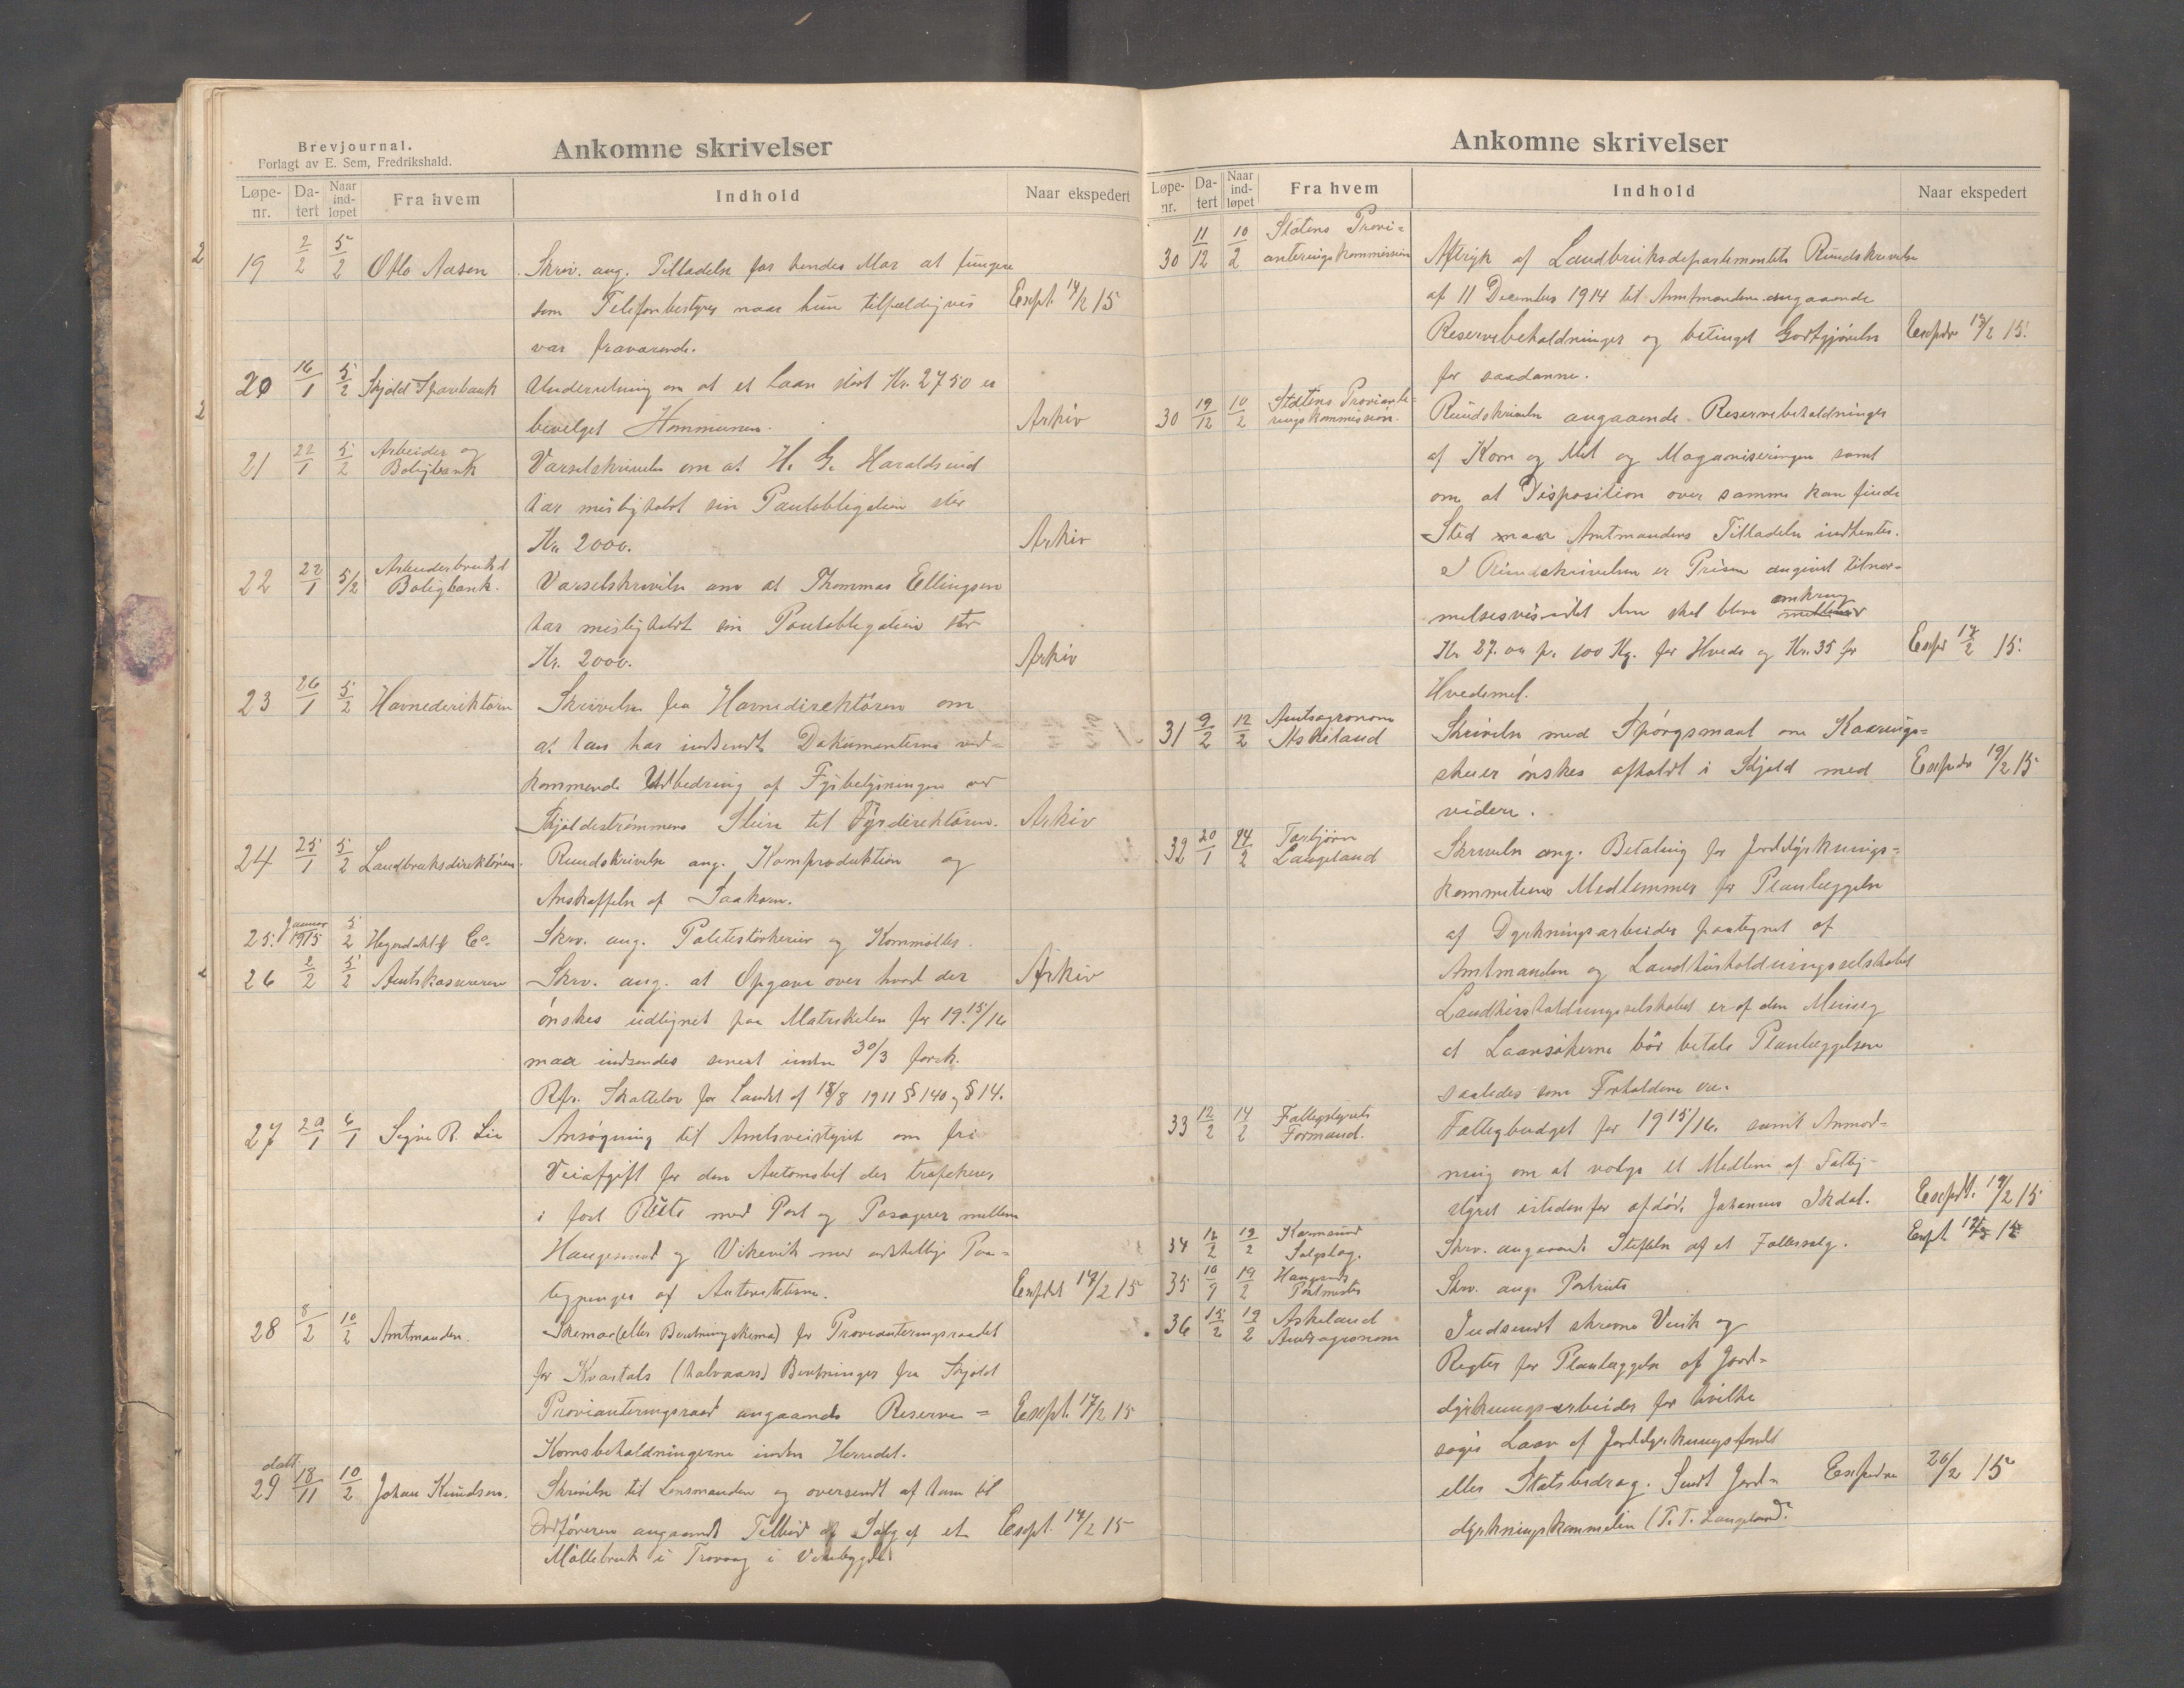 Brevjournal.
Forlagt av E. Sem, Fredrikshald.
Ankomne skrivelser
Løpe-nr. Da-tert Naar ind-løpet Fra hvem Indhold Naar ekspedert
19 2/2 5/2 Otto Aasen Skriv. ang. Tilladelse for hendes Mor at fungere
som Telefonbestyrer naar hun tilfældigvis Exspt. 17/2 15
var fraværende.
20 16/1 5/2 Skjold Sparebank Underretning om at et Laan stort Kr. 2750 er
bevilget Kommunen. Arkiv
21 22/1 5/2 Arbeider og Boligbank Varselskrivelse om at H. G. Haraldseid
har misligholdt sin Panteobligation stor
Kr. 2000. Arkiv
22 22/1 5/2 Boligbank. Varselskrivelse om at Thommas Ellingsen
har misligholdt sin Panteobligation stor
Kr. 2000. Arkiv
23 26/1 5/2 Havnedirektøren Skrivelse fra Havnedirektøren om
at han har indsendt Dokumenterne ved-
kommende Udbedring af Fyrbelysningen ved
Skjoldestrømmens Sluse til Fyrdirektøren. Arkiv
24 25/1 5/2 Landbruksdirektøren. Rundskrivelse ang. Kornproduktion og
Anskaffelse af Saakorn.
25. Januar 1915 5/2 Hegerdahl & Co. Skrv. ang. og Kornmøller.
26 2/2 5/2 Amtskassereren Skrv. ang. at Opgave over hvad der Arkiv
ønskes udlignet paa Matrikelen for 1915/16
maa indsendes senest inden 30/3 førstk.
Rfr. Skattelov for Landet af 18/8 1911 § 140 og § 14.
27 29/1 6/1 Signe R. Lie Ansøgning til Amtsveistyret om fri
Veiafgift for den Automobil der trafikerer
i fast Rute med Post og Passagerer mellem
Haugesund og Vikevik med adskellige Paa-
tegninger af Autoriteterne. Exspdt 17/2 15
28 8/2 10/2 Amtmanden. Skemaer (eller Beretningskema) for Provianteringsraadet
for Kvartals (halvaars) Beretninger fra Skjold
Provianteringsraad angaaende Reserve= Exspt. 17/2 15
Kornsbeholdningerne inden Herredet.
29 dat. 18/11 10/2 Johan Knudsen. Skrivelse til Lensmanden og oversendt af ham til
Ordføreren angaaende Tilbud af Salg af et Exspt. 17/2 15
Møllebruk i Trovaag i Vindbygd
Ankomne skrivelser
Løpe-nr. Da-tert Naar ind-løpet Fra hvem Indhold Naar ekspedert
30 11/12 10/2 Statens Provi=
anteringskommission Aftryk af Landbruksdepartementets Rundskrivelse
af 11 December 1914 til Amtmandene angaaende
Reservebeholdninger og betinget Godtgjørelse Exspdr 17/2 15.
for saadanne.
30 19/12 10/2 Statens Proviante=
ringskommission. Rundskrivelse angaaende Reservebeholdninger
af Korn og Mel og Magasineringen samt
om at Disposition over samme kan finde
Sted maa Amtmandens Tilladelse indhentes.
I Rundskrivelsen er Prisen angivet tilnær-
melsesvis idet den skal blive omkring
Kr 27.00 pr. 100 Kg. for Hvede og Kr. 35 for Exspr 17/2 15.
Hvedemel.
31 9/2 12/2 Amtsagronom
Askeland Skrivelse med Spørgsmaal om Kaarings-
skuer ønskes afholdt i Skjold med Exspdr 19/2 15
videre.
32 20/1 14/2 Torbjørn
Langeland Skrivelse ang. Betaling for Jorddyrknings-
kommiteens Medlemmer for Planlæggelse
af Dyrkningsarbeider paategnet af
Amtmanden og Landhusholdningsselskabet
Landhusholdningsselskabet er af den Mening
at Laansøkerne bør betale Planlæggelsen
saaledes som Forholdene er.
33 12/2 14/2 Fattigstyrets
Formand. Fattigbudget for 1915/16. samt Anmod-
ning om at vælge et Medlem af Fattig-
styret istedenfor afdøde Johannes Ikdal. Exspdt. 19/2 15
34 12/2 19/2 Karmsund
Salgslag. Skrv. angaaende Stiftelse af et Fællessalg. Exspt 15
35 10/9 19/2 Haugesunds
Postmester Skrv. ang. Postrute
36 15/2 19/2 Askeland
Amtsagronom Indsendt skrevne og
Regler for Planlæggelse af Jord=
dyrkningsarbeider for hvilke
søges Laan af Jorddyrkningsfondet
eller Statsbidrag. Sendt Jord= Exspedr 20/2 15
dyrkningskommiteen (T. T. Langeland.